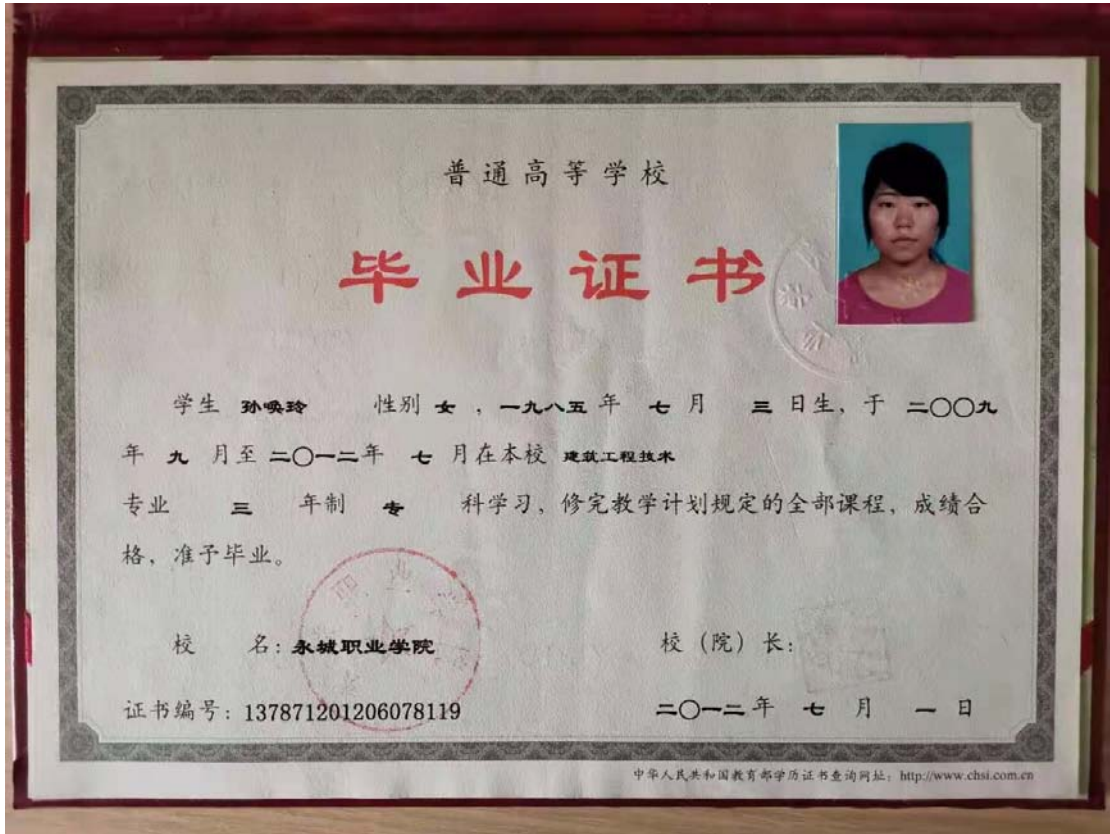 普通高等学校
毕业证书
学生 孙唤玲 性别 女 ，一九八五 年 七 月 三 日生，于 二〇〇九
年 九 月至 二〇一二年 七 月在本校 建筑工程技术
专业 三 年制 专 科学习，修完教学计划规定的全部课程，成绩合
格，准予毕业。
校 名：永城职业学院 校（院）长：
证书编号：137871201206078119 二〇一二年 七 月 一 日
中华人民共和国教育部学历证书查询网址：http://www.chsi.com.cn